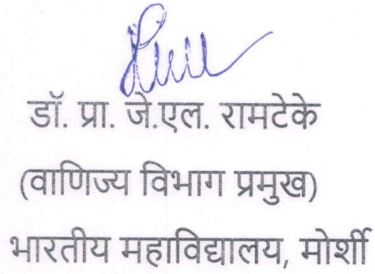 डॉ. प्रा. जे.एल. रामटेके
(वाणिज्य विभाग प्रमुख)
भारतीय महाविद्यालय, मोर्शी